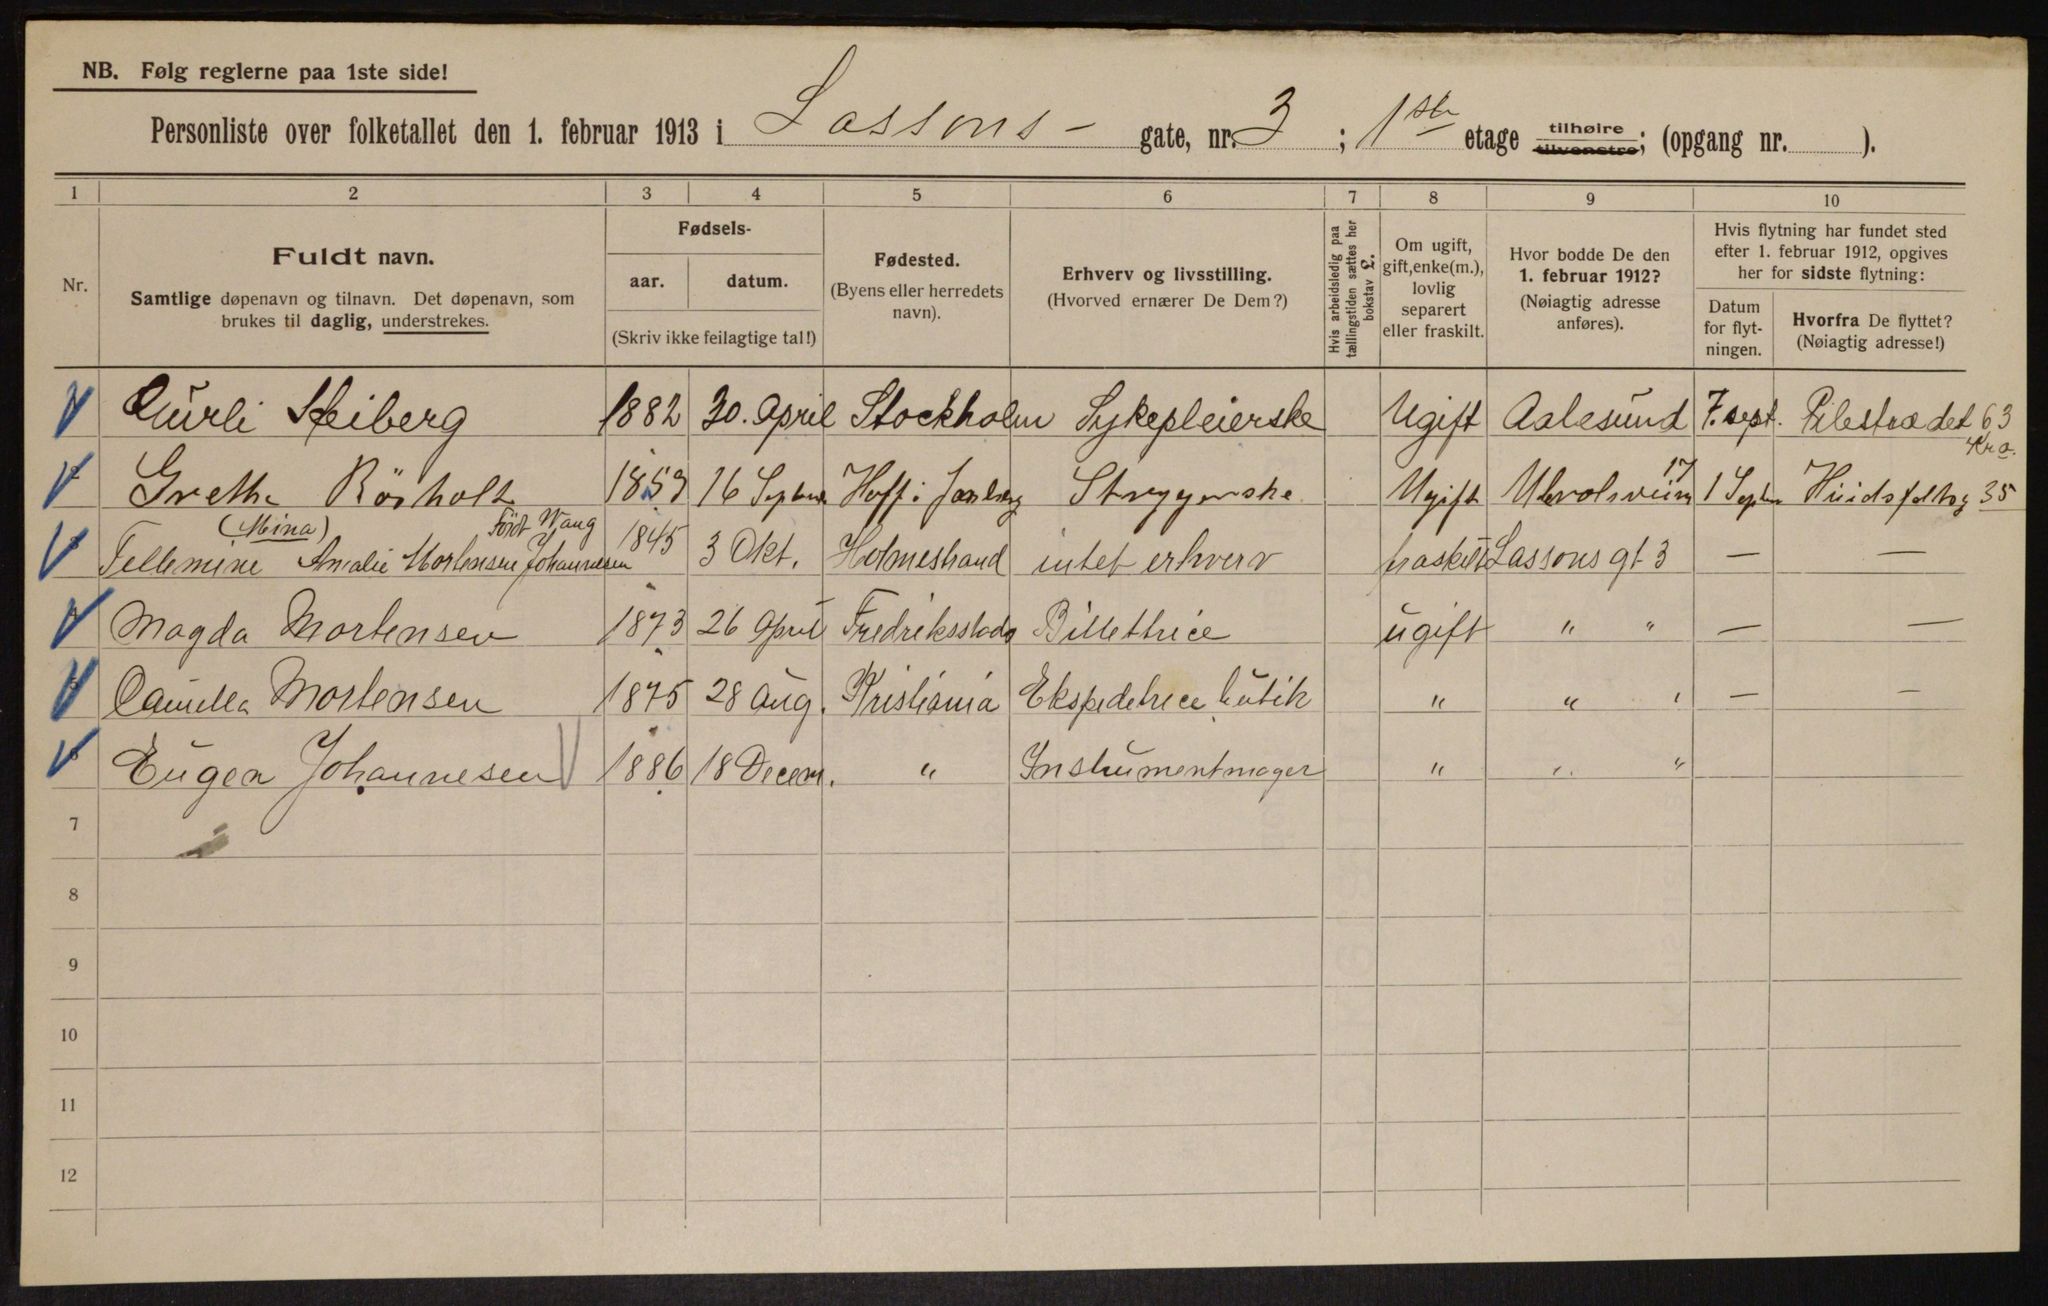 NB. Følg reglerne paa 1ste side!
Personliste over folketallet den 1. februar 1913 i Lassons- gate, nr. 3 ; 1ste etage tilhøire tilvenstre; (opgang nr. ).
1 2 3 4 5 6 7 8 9 10
Nr.
Fuldt navn.
Samtlige døpenavn og tilnavn. Det døpenavn, som
brukes til daglig, understrekes.
Fødsels-
aar. datum.
(Skriv ikke feilagtige tal!)
Fødested.
(Byens eller herredets
navn).
Erhverv og livsstilling.
(Hvorved ernærer De Dem?)
Hvis arbeidsledig paa
tællingstiden sættes her
bokstav £.
Om ugift,
gift, enke(m.),
lovlig
separert
eller fraskilt.
Hvor bodde De den
1. februar 1912?
(Nøiagtig adresse
anføres).
Hvis flytning har fundet sted
efter 1. februar 1912, opgives
her for sidste flytning:
Datum
for flyt-
ningen.
Hvorfra De flyttet?
(Nøiagtig adresse!)
Heiberg 1882 30. April Stockholm Sykepleierske Ugift Aalesund 7. sept. Pilestrædet 63
Kra.
Grethe 16 Hoff i Strygerske Ugift 17 1 35
(Mina) Født Wang
Amalie Mortensen Johannesen 1845 3 Okt. Holmestrand intet erhverv fraskilt Lassons gt 3 — —
Magda Mortensen 1873 26 April Fredriksstad Billettrice ugift " " — —
Camilla Mortensen 1875 28 Aug. Kristiania Ekspedetrice butik " " " — —
Eugen Johannesen 1886 18 Decem. " Instrumentmager " " "
7
8
9
10
11
12